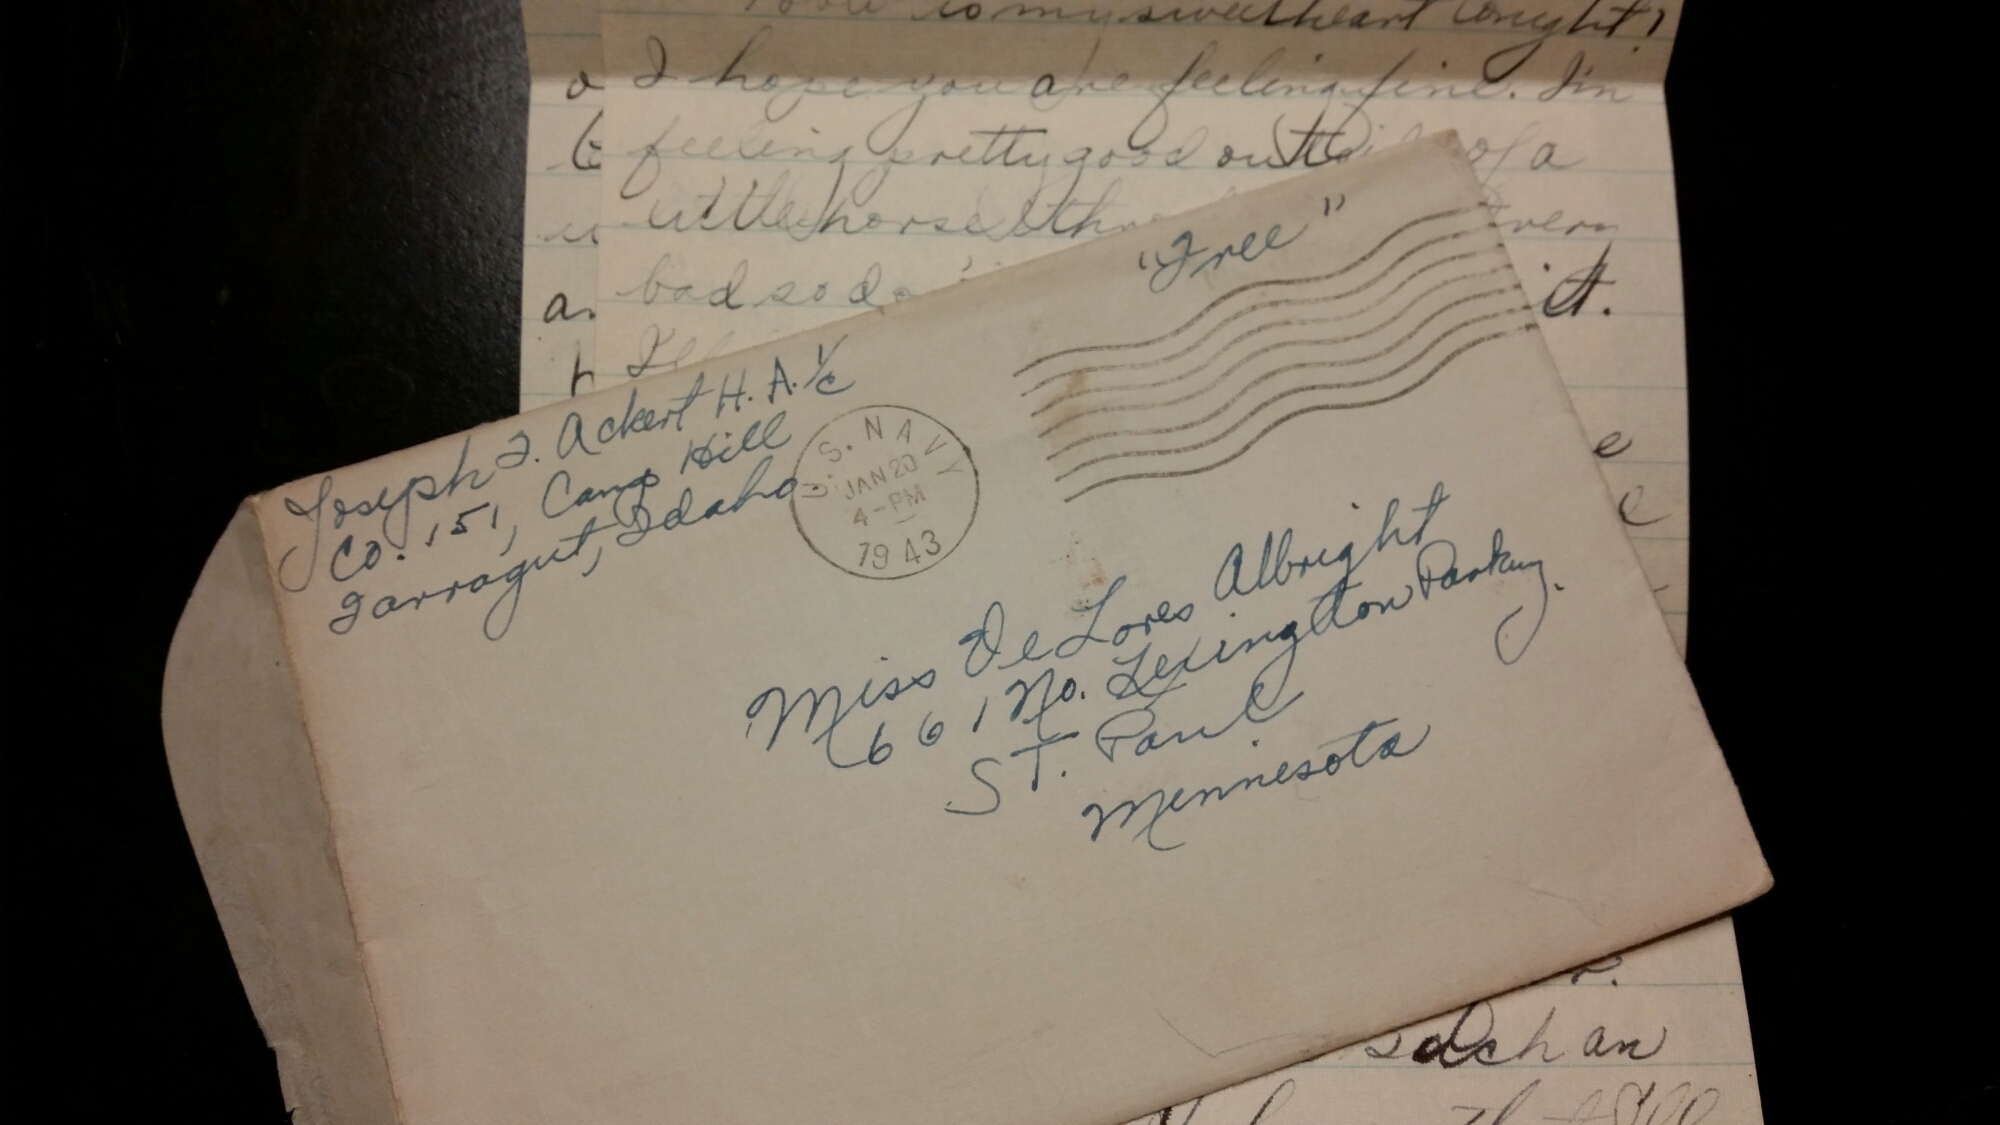 is my sweetheart tonight?
I hope you are feeling fine. I'm
feeling pretty good outside of a
little horse
bad so it.
"Free"
Joseph F. Ackert H.A. 1/c
Co. 151, Camp Hill
Farragut, Idaho
U. S. NAVY
JAN 20
4-PM
1943
Miss DeLores Albright
661 No. Lexington Parkway.
ST. Paul
Minnesota
such an